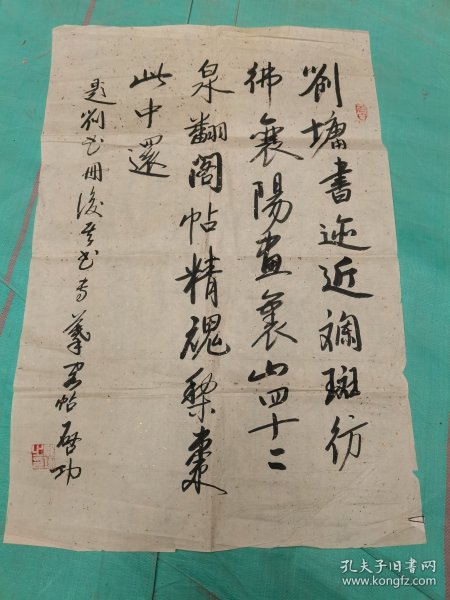 劉墉書迹近斓斑彷
彿襄陽畫裏山四十二
泉翻閣帖精魂梨棗
此中還
題劉書册後
啓功
孔夫子旧书网
www.kongfz.com